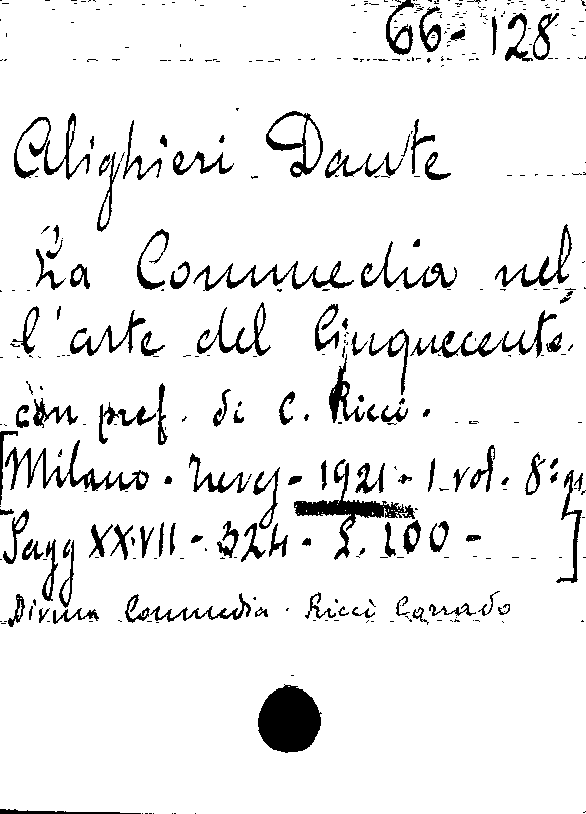 66-128
Alighieri Dante
La Commedia nel
l'arte del Cinquecento
con pref. di C. Ricci.
[Milano. Treves - 1921 - 1 vol. 8°
Pagg XXVII - 324 - L. 100 - ]
Divina Commedia. Ricci Corrado